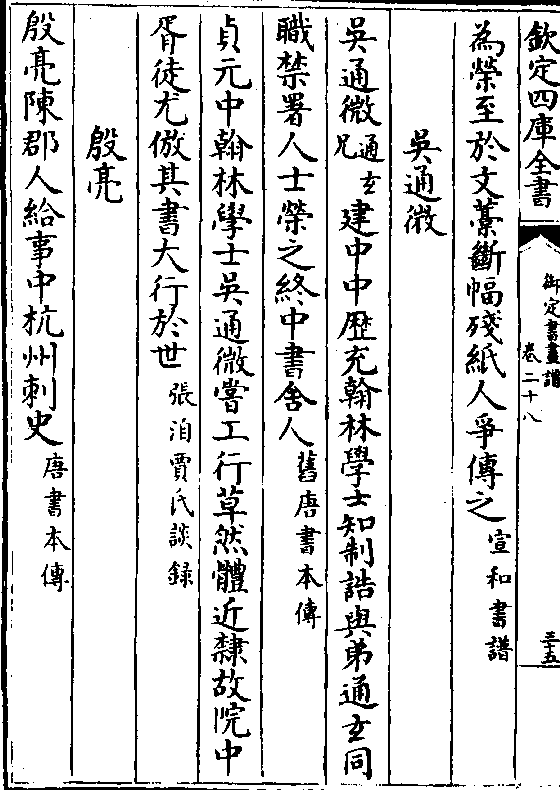 欽定四庫全書
御定書畫譜
卷二十八
三十五
為榮至於文藁斷幅殘紙人爭傳之宣和書譜
吳通微
吳通微通玄兄建中中歴充翰林學士知制誥與弟通玄同
職禁署人士榮之終中書舍人舊唐書本傳
貞元中翰林學士吳通微嘗工行草然體近隸故院中
胥徒尤倣其書大行於世張洎賈氏談録
殷亮
殷亮陳郡人給事中杭州刺史唐書本傳